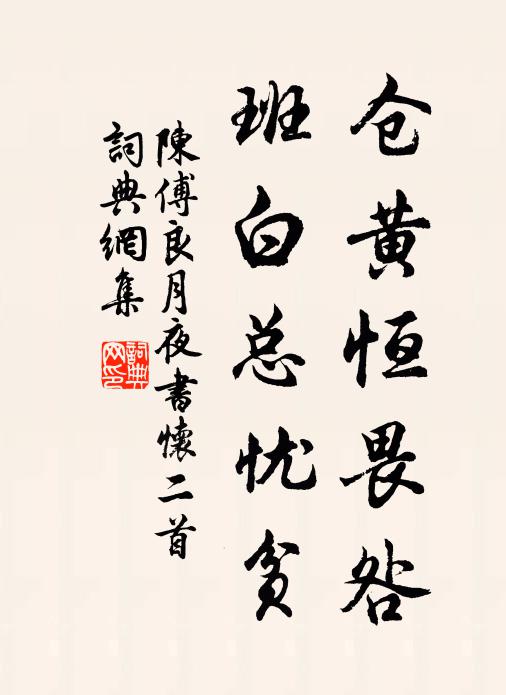 仓黄恒畏咎
班白总忧贫
陳傅良月夜書懷二首
詞典網集
詞典网印